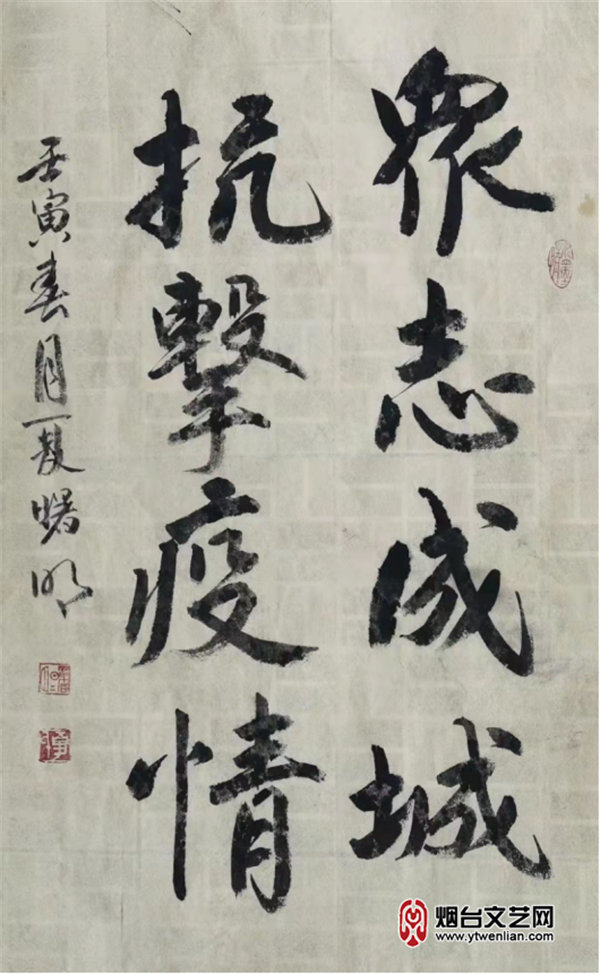 眾志成城
抗擊疫情
壬寅春月
曙明
烟台文艺网
www.ytwenlian.com